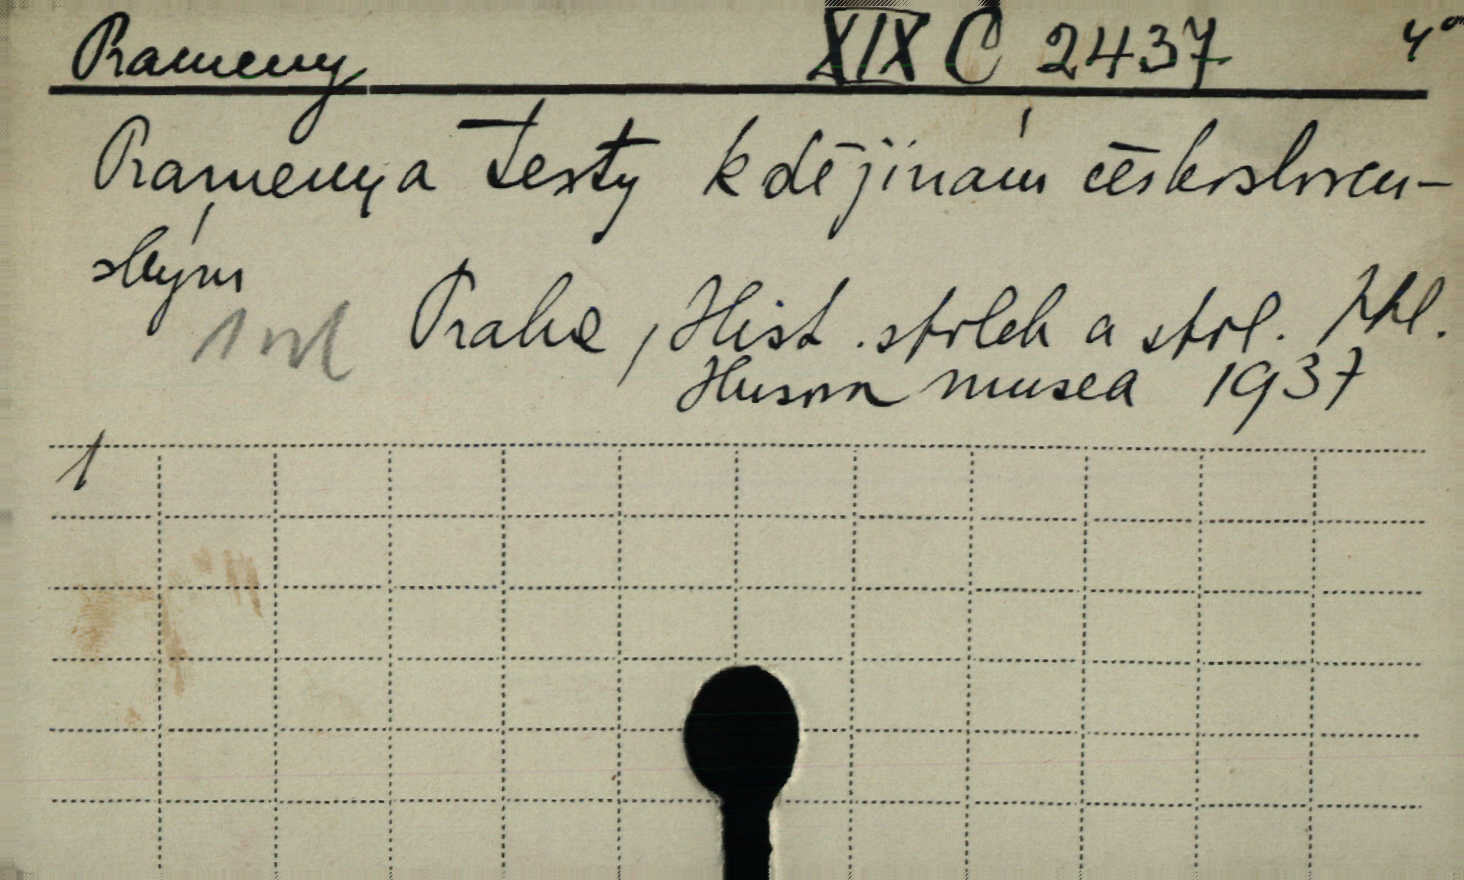 Prameny XIX C 2437 4°
Prameny a texty k dějinám českosloven-
ským
Praha, Hist. spolek a spol.
Husova musea 1937
1